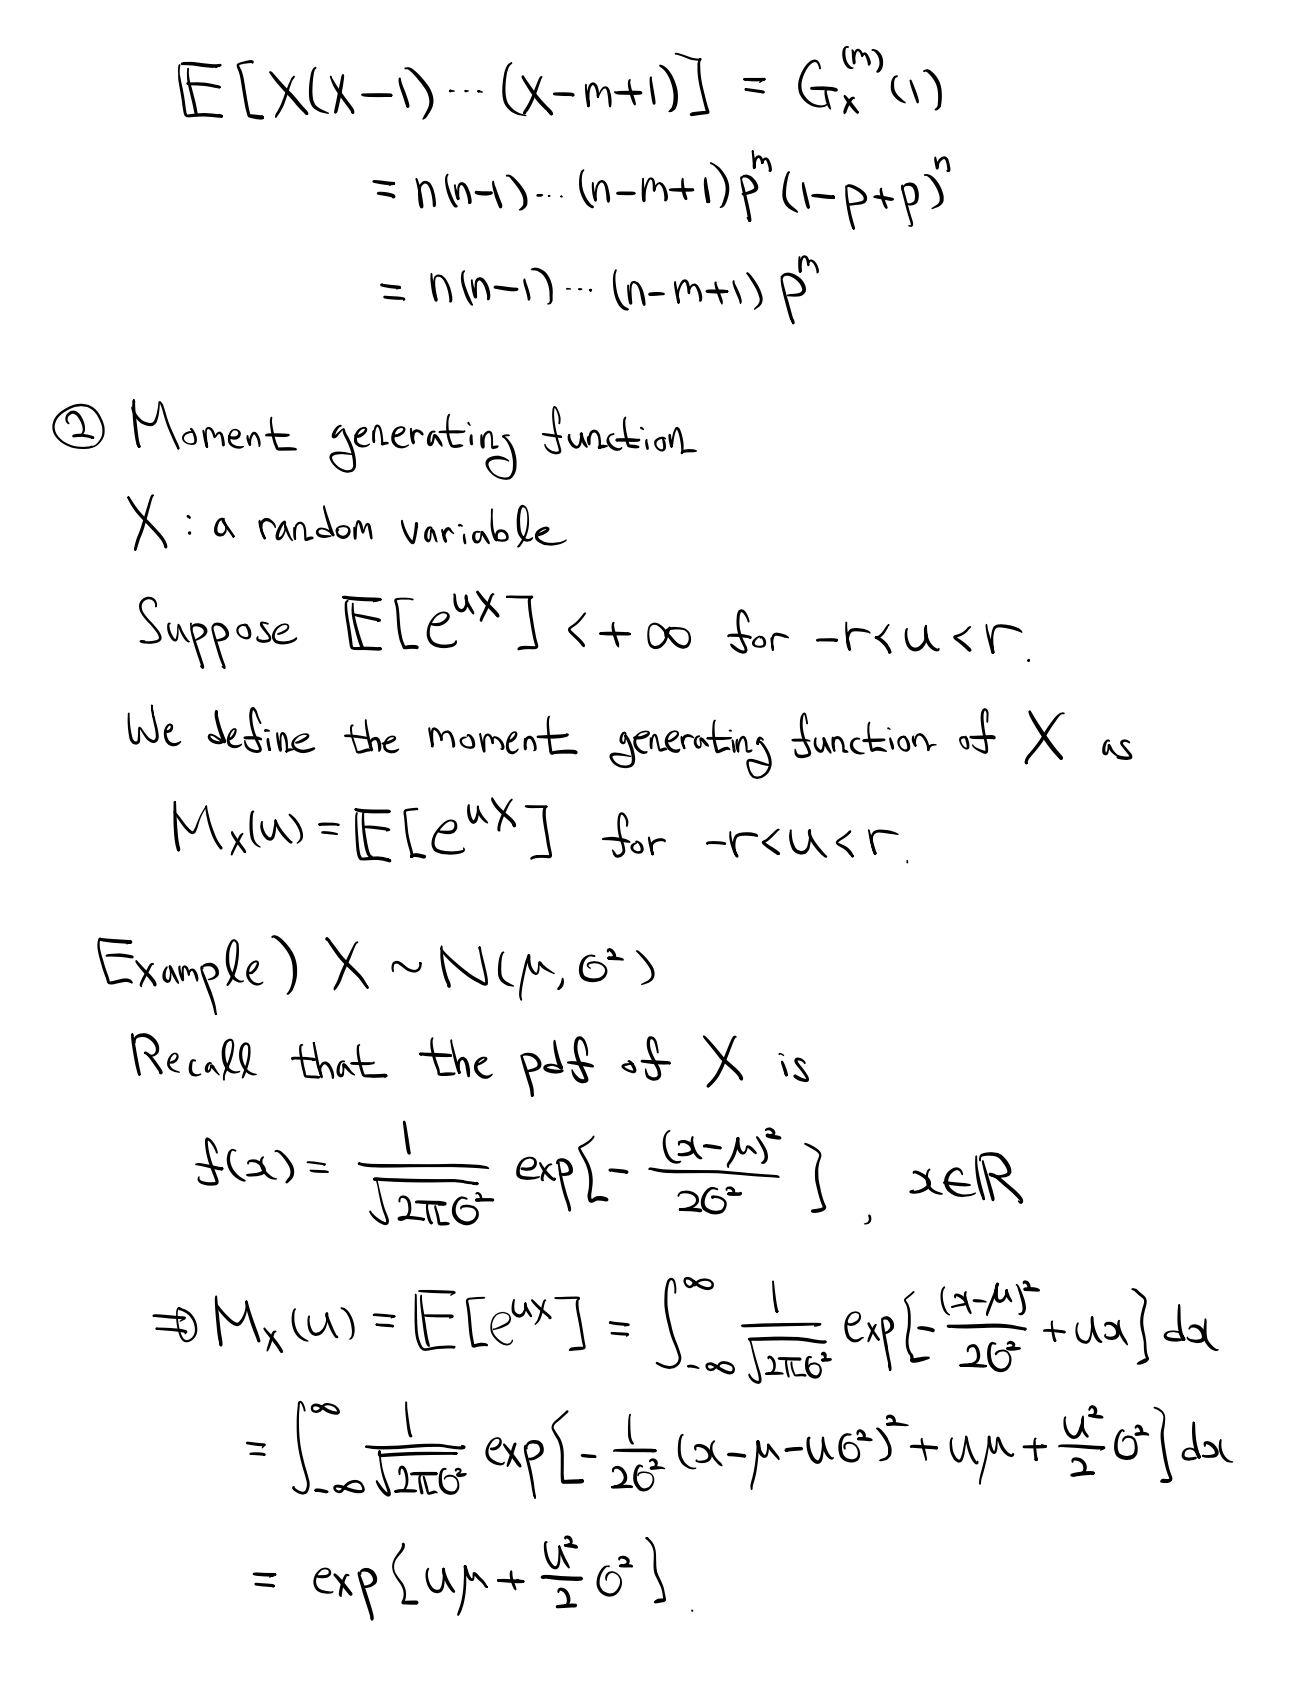 𝔼[X(X-1)⋯(X-m+1)] = G_X^{(m)}(1)
= n(n-1)⋯(n-m+1)p^m(1-p+p)^n
= n(n-1)⋯(n-m+1)p^m
② Moment generating function
X : a random variable
Suppose 𝔼[e^{uX}] < +∞ for -r<u<r.
We define the moment generating function of X as
M_X(u) = 𝔼[e^{uX}] for -r<u<r.
Example) X ~ N(μ, σ²)
Recall that the pdf of X is
f(x) = \frac{1}{\sqrt{2πσ²}} exp{-\frac{(x-μ)²}{2σ²}}, x∈ℝ
⇒ M_X(u) = 𝔼[e^{uX}] = ∫_{-∞}^{∞} \frac{1}{\sqrt{2πσ²}} exp{-\frac{(x-μ)²}{2σ²} + ux} dx
= ∫_{-∞}^{∞} \frac{1}{\sqrt{2πσ²}} exp{-\frac{1}{2σ²}(x-μ-uσ²)² + uμ + \frac{u²}{2}σ²} dx
= exp{uμ + \frac{u²}{2}σ²}.